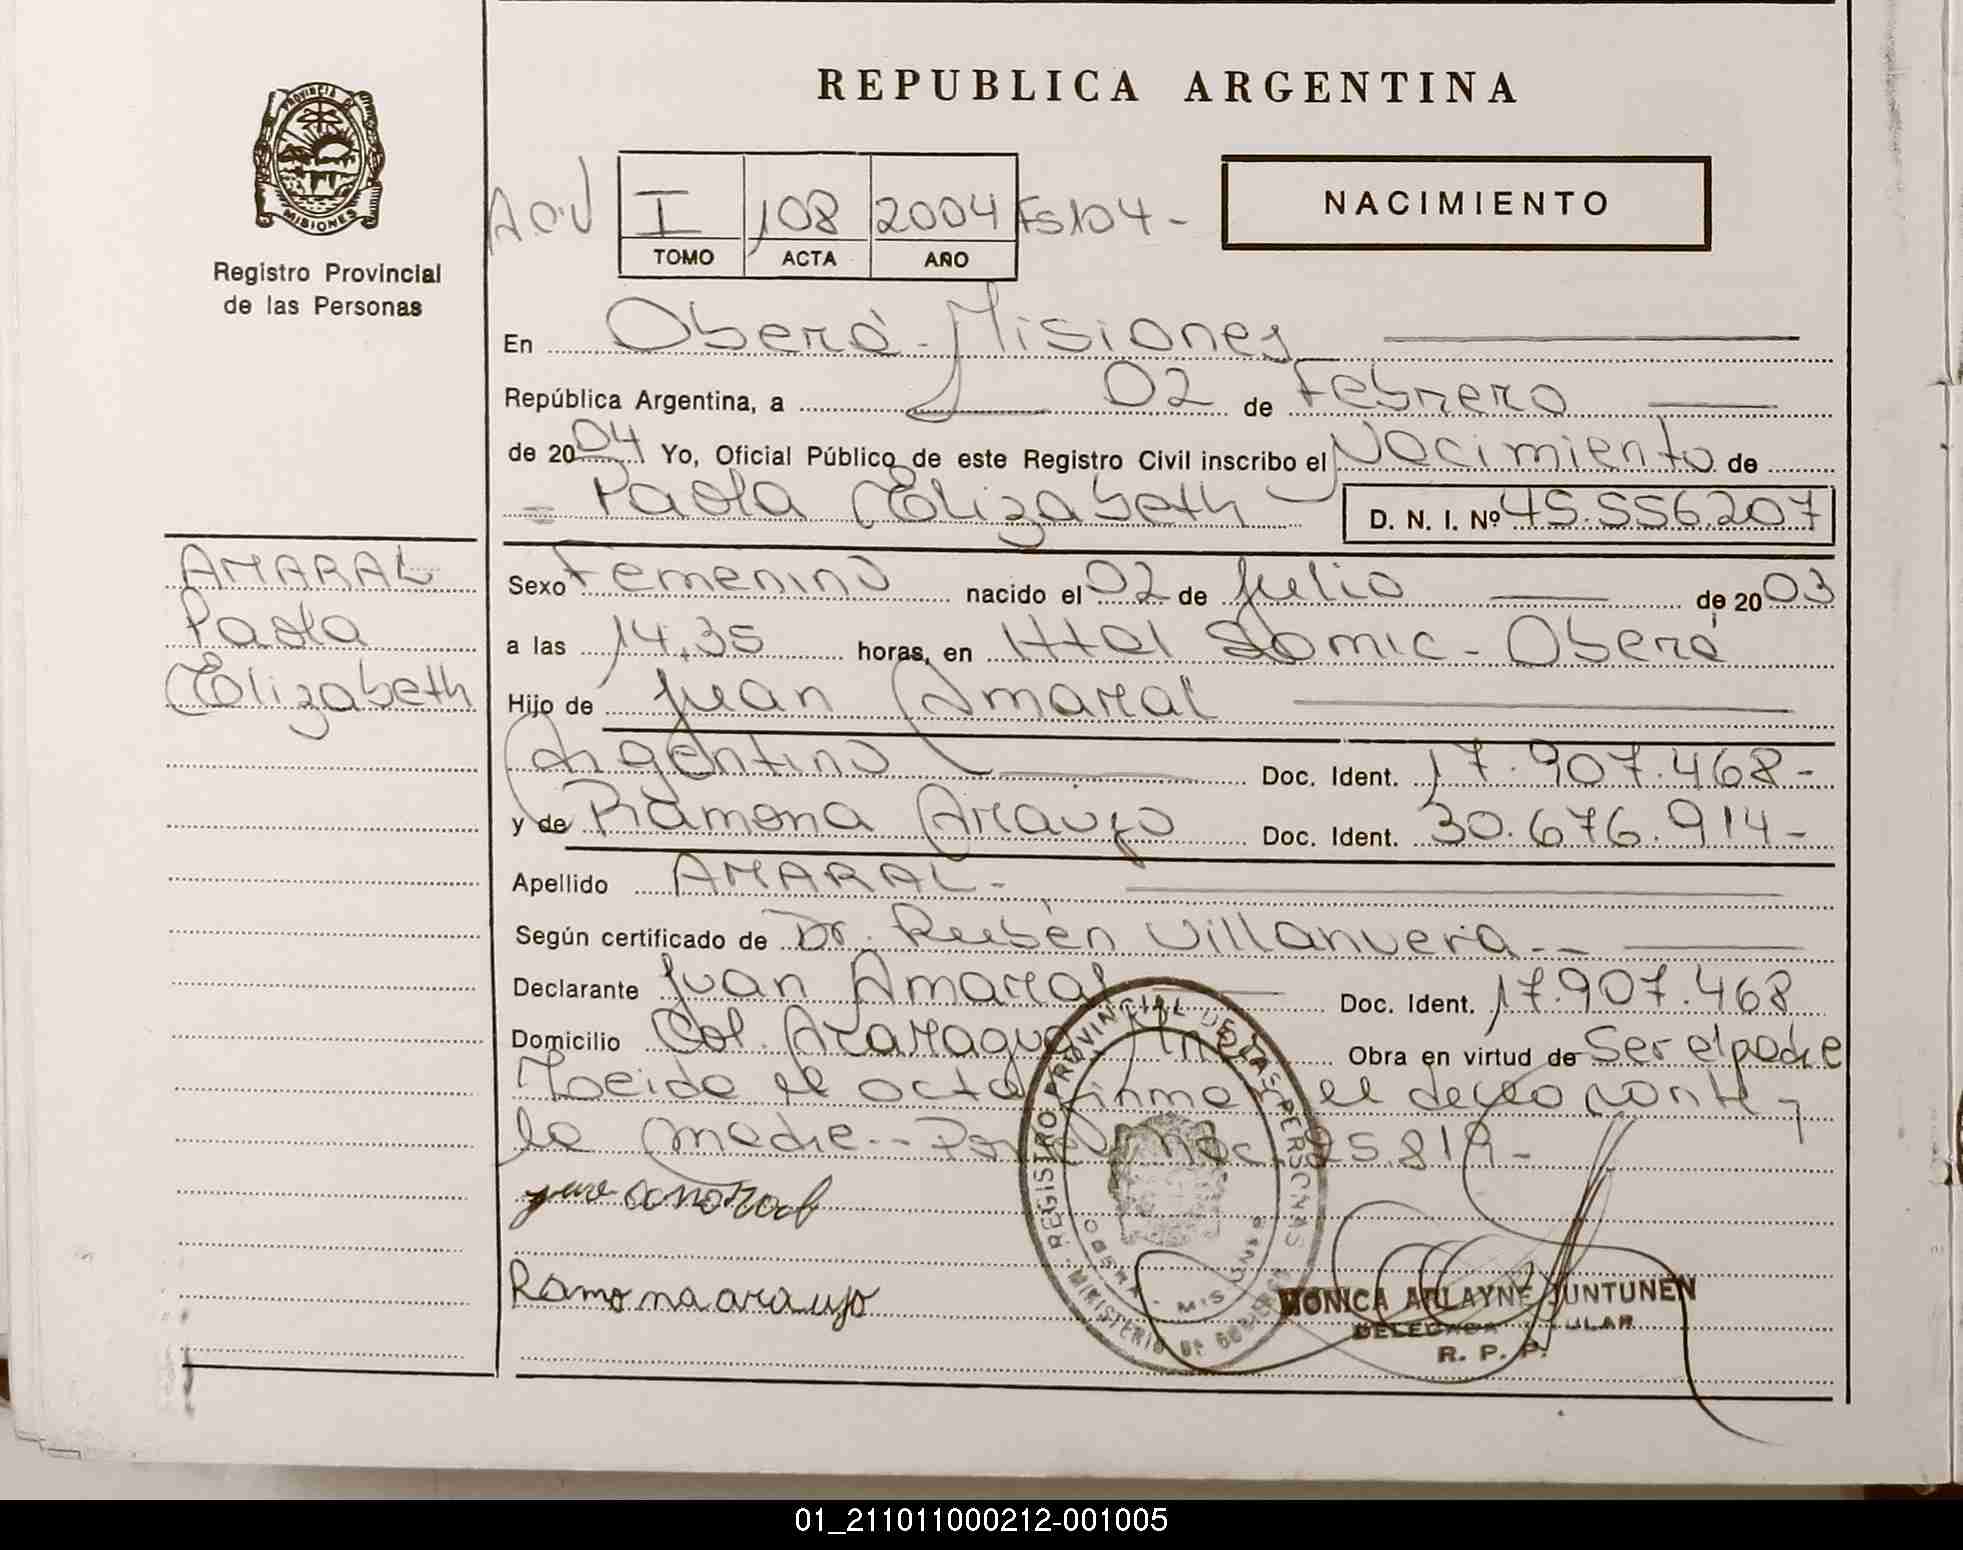 REPUBLICA ARGENTINA
PROVINCIA DE
MISIONES
Registro Provincial
de las Personas
I 108 2004 Fs 104-
TOMO ACTA AÑO
NACIMIENTO
En Oberá - Misiones
República Argentina, a 02 de Febrero
de 2004 Yo, Oficial Público de este Registro Civil inscribo el Nacimiento de
= Paola Elizabeth D. N. I. Nº 45.556207
AMARAL
Paola
Elizabeth
Sexo Femenino nacido el 02 de Julio de 2003
a las 14,35 horas, en Htal Samic - Oberá
Hijo de Juan Amaral
Argentino Doc. Ident. 17.907.468-
y de Ramona Araujo Doc. Ident. 30.676.914-
Apellido AMARAL-
Según certificado de Dr. Rubén Villanueva--
Declarante Juan Amaral Doc. Ident. 17.907.468
Domicilio Col. Acaragua Obra en virtud de Ser el padre
el acta firman el declarante,
la madre.--
Ramona araujo
REGISTRO PROVINCIAL DE LAS PERSONAS
OBERA - MISIONES
MINISTERIO DE GOBIERNO
MONICA ARLAYNE JUNTUNEN
DELEGADA TITULAR
R. P. P.
01_211011000212-001005